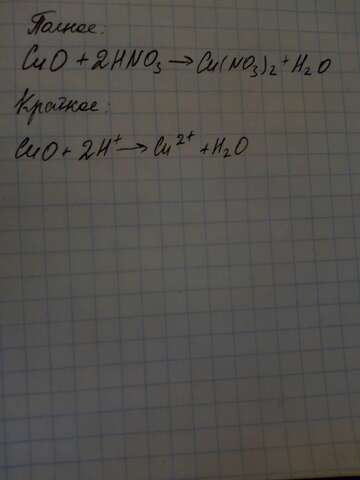 Полное:
CuO + 2HNO₃ → Cu(NO₃)₂ + H₂O
Краткое:
CuO + 2H⁺ → Cu²⁺ + H₂O